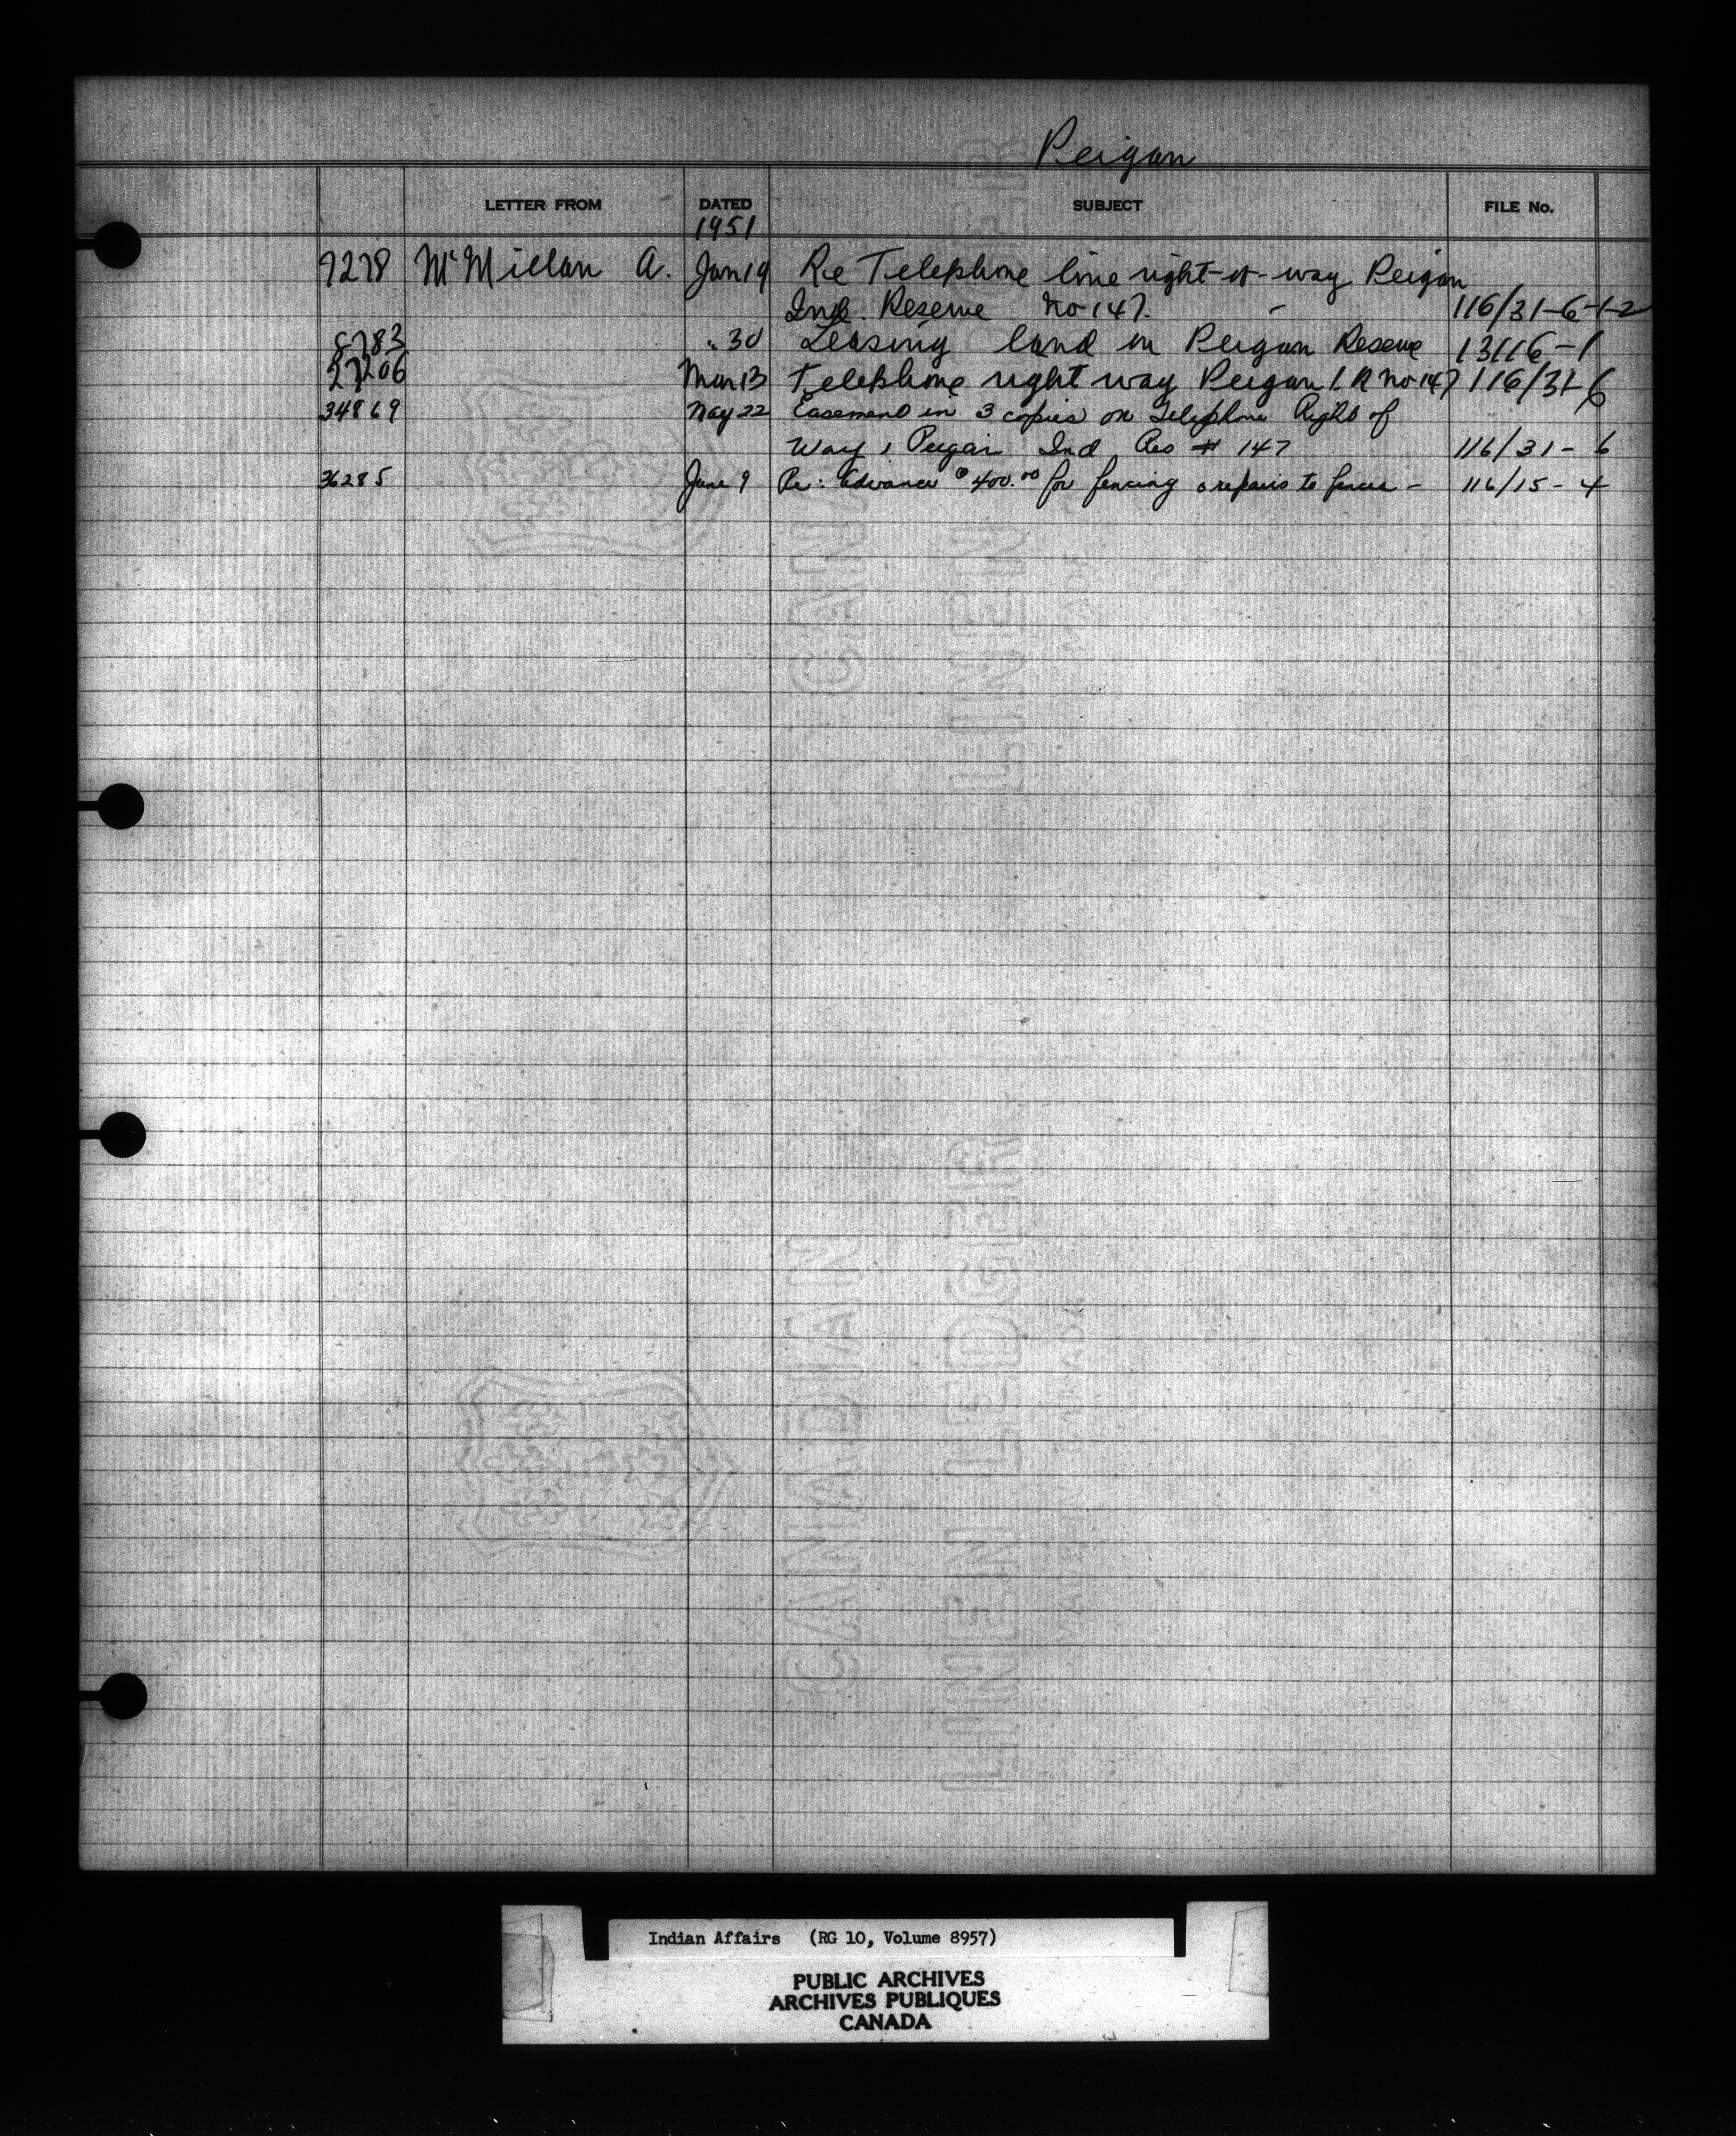 Peigan
LETTER FROM DATED SUBJECT FILE No.
1951
7278 McMillan A. Jan 19 Re Telephone line right-of-way Peigan
Ind. Reserve No 147. - 116/31-6-1-2
8783 " 30 Leasing land in Peigan Reserve 13116-1
27206 Mar 13 Telephone right way Peigan I. R No 147 116/31-6
34869 May 22 Easement in 3 copies on Telephone Right of
Way, Peigan Ind Res # 147 116/31-6
36285 June 9 Re: Advance 400.00 for fencing & repairs to fences - 116/15-4
CANADIAN
LINEN LEDGER
Indian Affairs (RG 10, Volume 8957)
PUBLIC ARCHIVES
ARCHIVES PUBLIQUES
CANADA